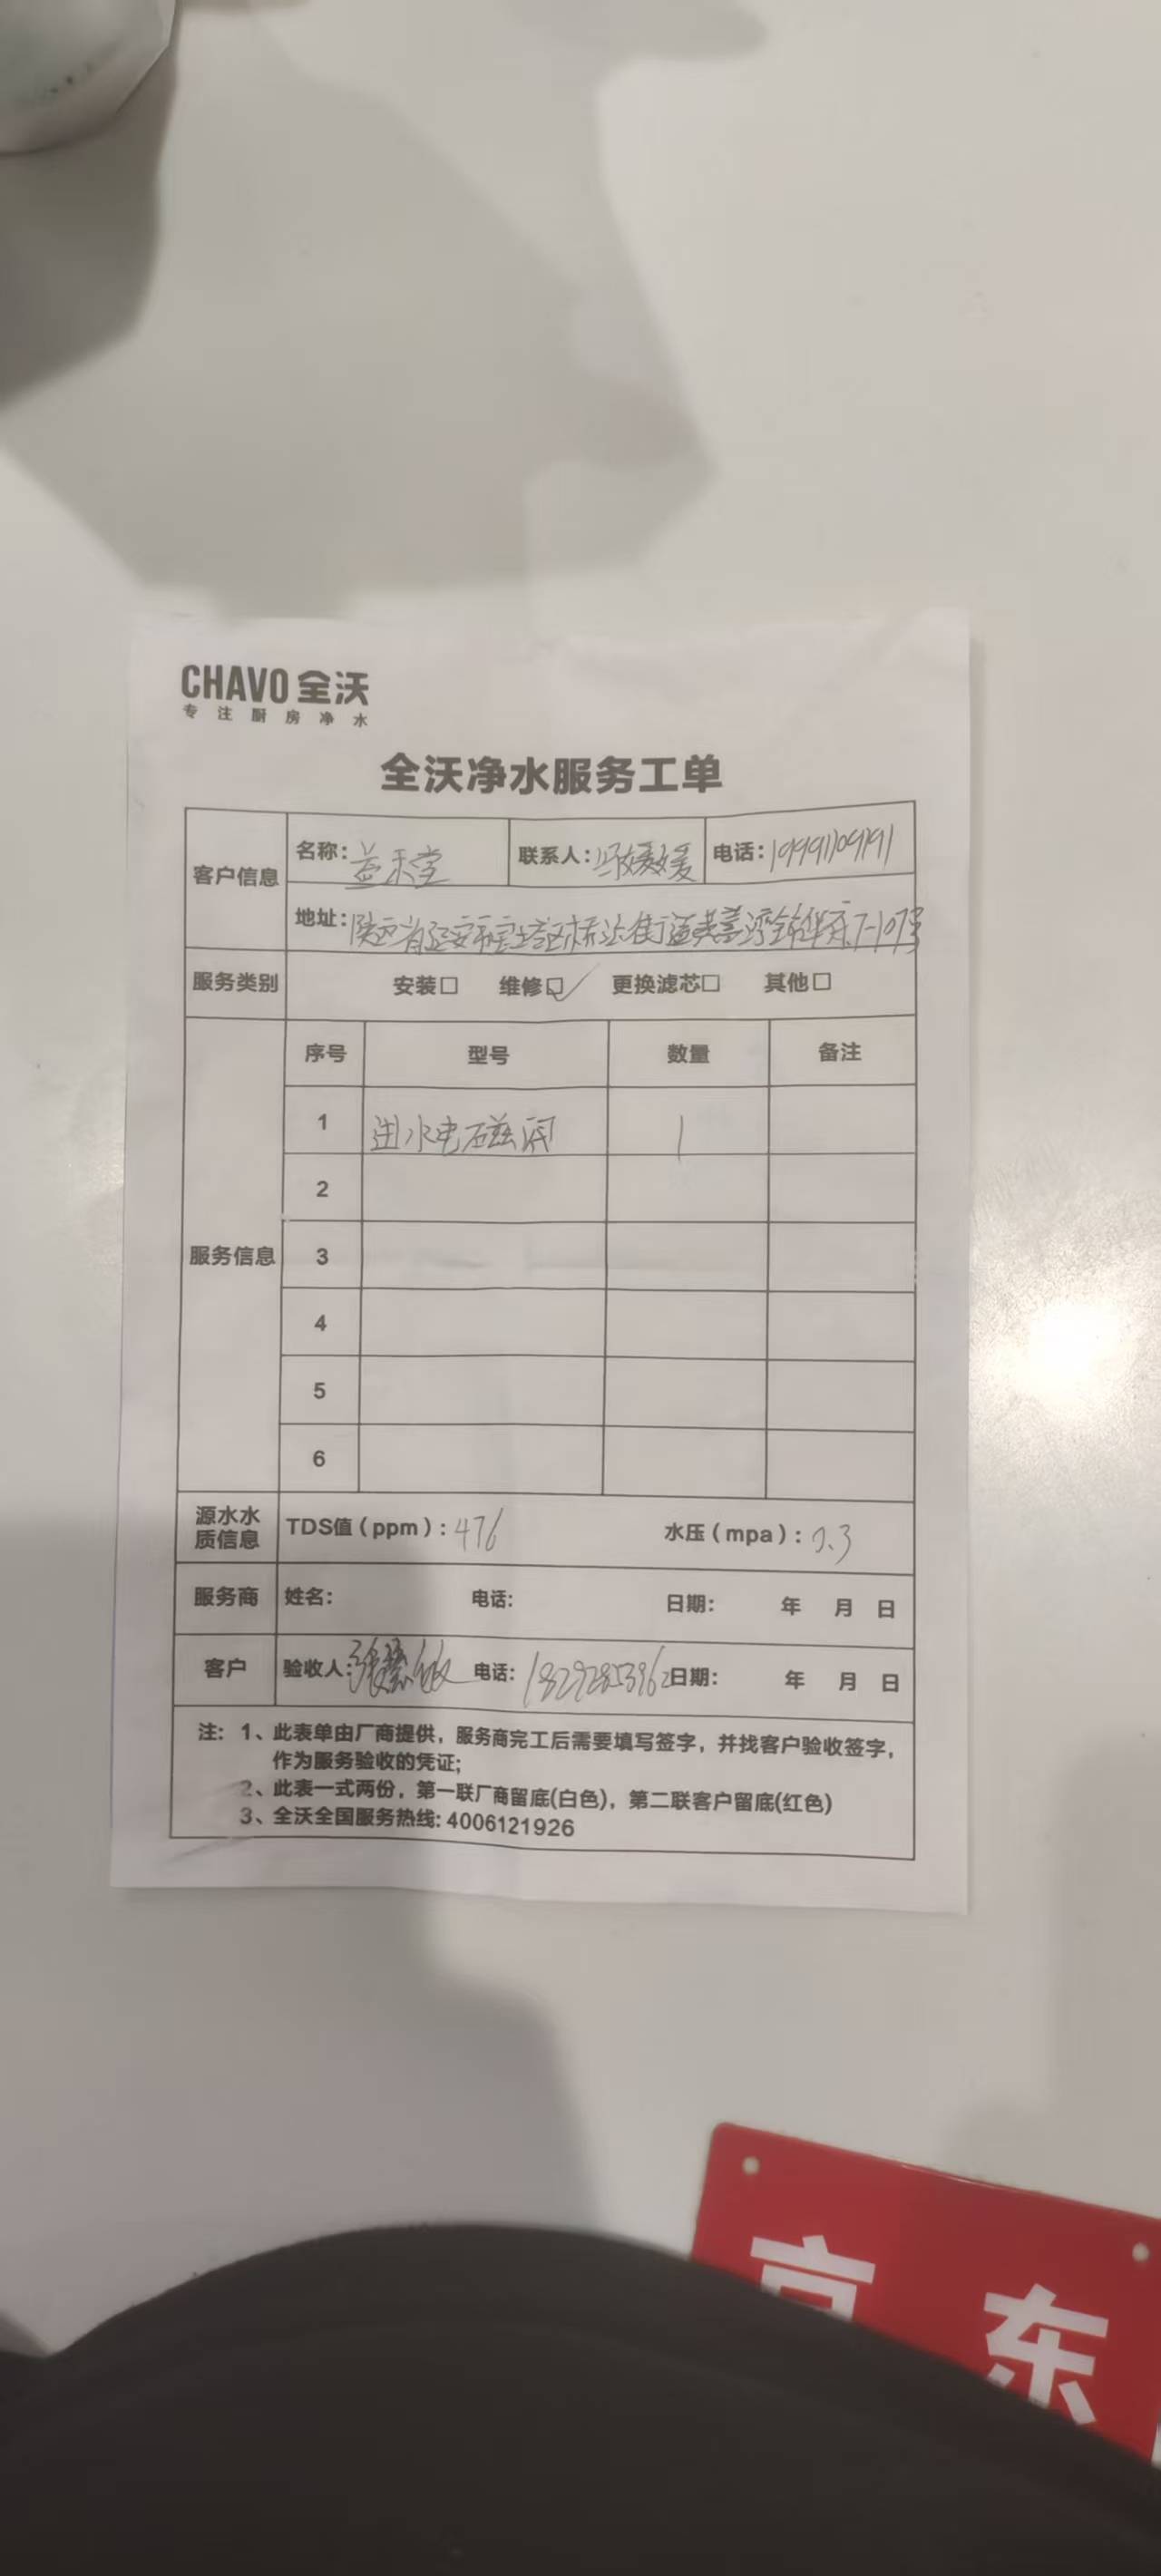 CHAVO 全沃
专注厨房净水
全沃净水服务工单
客户信息 名称: 益禾堂 联系人: 冯媛媛 电话: 19991109191
地址: 陕西省延安市宝塔区桥沟街道 7-107号
服务类别 安装□ 维修☑ 更换滤芯□ 其他□
服务信息 序号 型号 数量 备注
1 进水电磁阀 1
2
3
4
5
6
源水水质信息 TDS值(ppm): 476 水压(mpa): 0.3
服务商 姓名: 电话: 日期: 年 月 日
客户 验收人: 电话: 18292853962 日期: 年 月 日
注: 1、此表单由厂商提供, 服务商完工后需要填写签字, 并找客户验收签字,
作为服务验收的凭证;
2、此表一式两份, 第一联厂商留底(白色), 第二联客户留底(红色)
3、全沃全国服务热线: 4006121926
京东